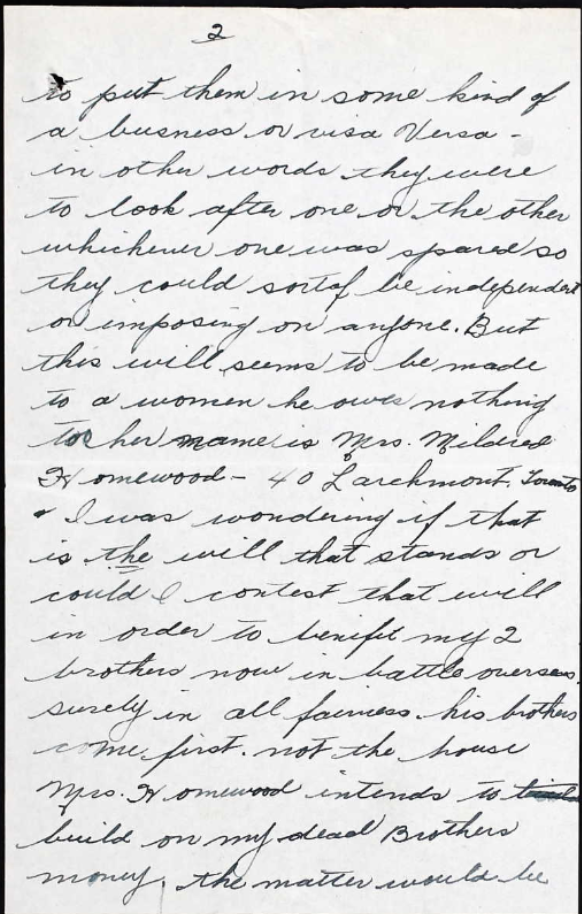 2
to put them in some kind of
a busness or visa Versa -
in other words they were
to look after one or the other
whichever one was spared so
they could sortof be independent
or imposing on anyone. But
this will seems to be made
to a women he owes nothing
too her name is Mrs. Mildred
Homewood - 40 Larchmont, Toronto
I was wondering if that
is the will that stands or
could I contest that will
in order to benifit my 2
brothers now in battle overseas.
surely in all fairness his brothers
come first. not the house
Mrs. Homewood intends to
build on my dead Brothers
money. the matter would be